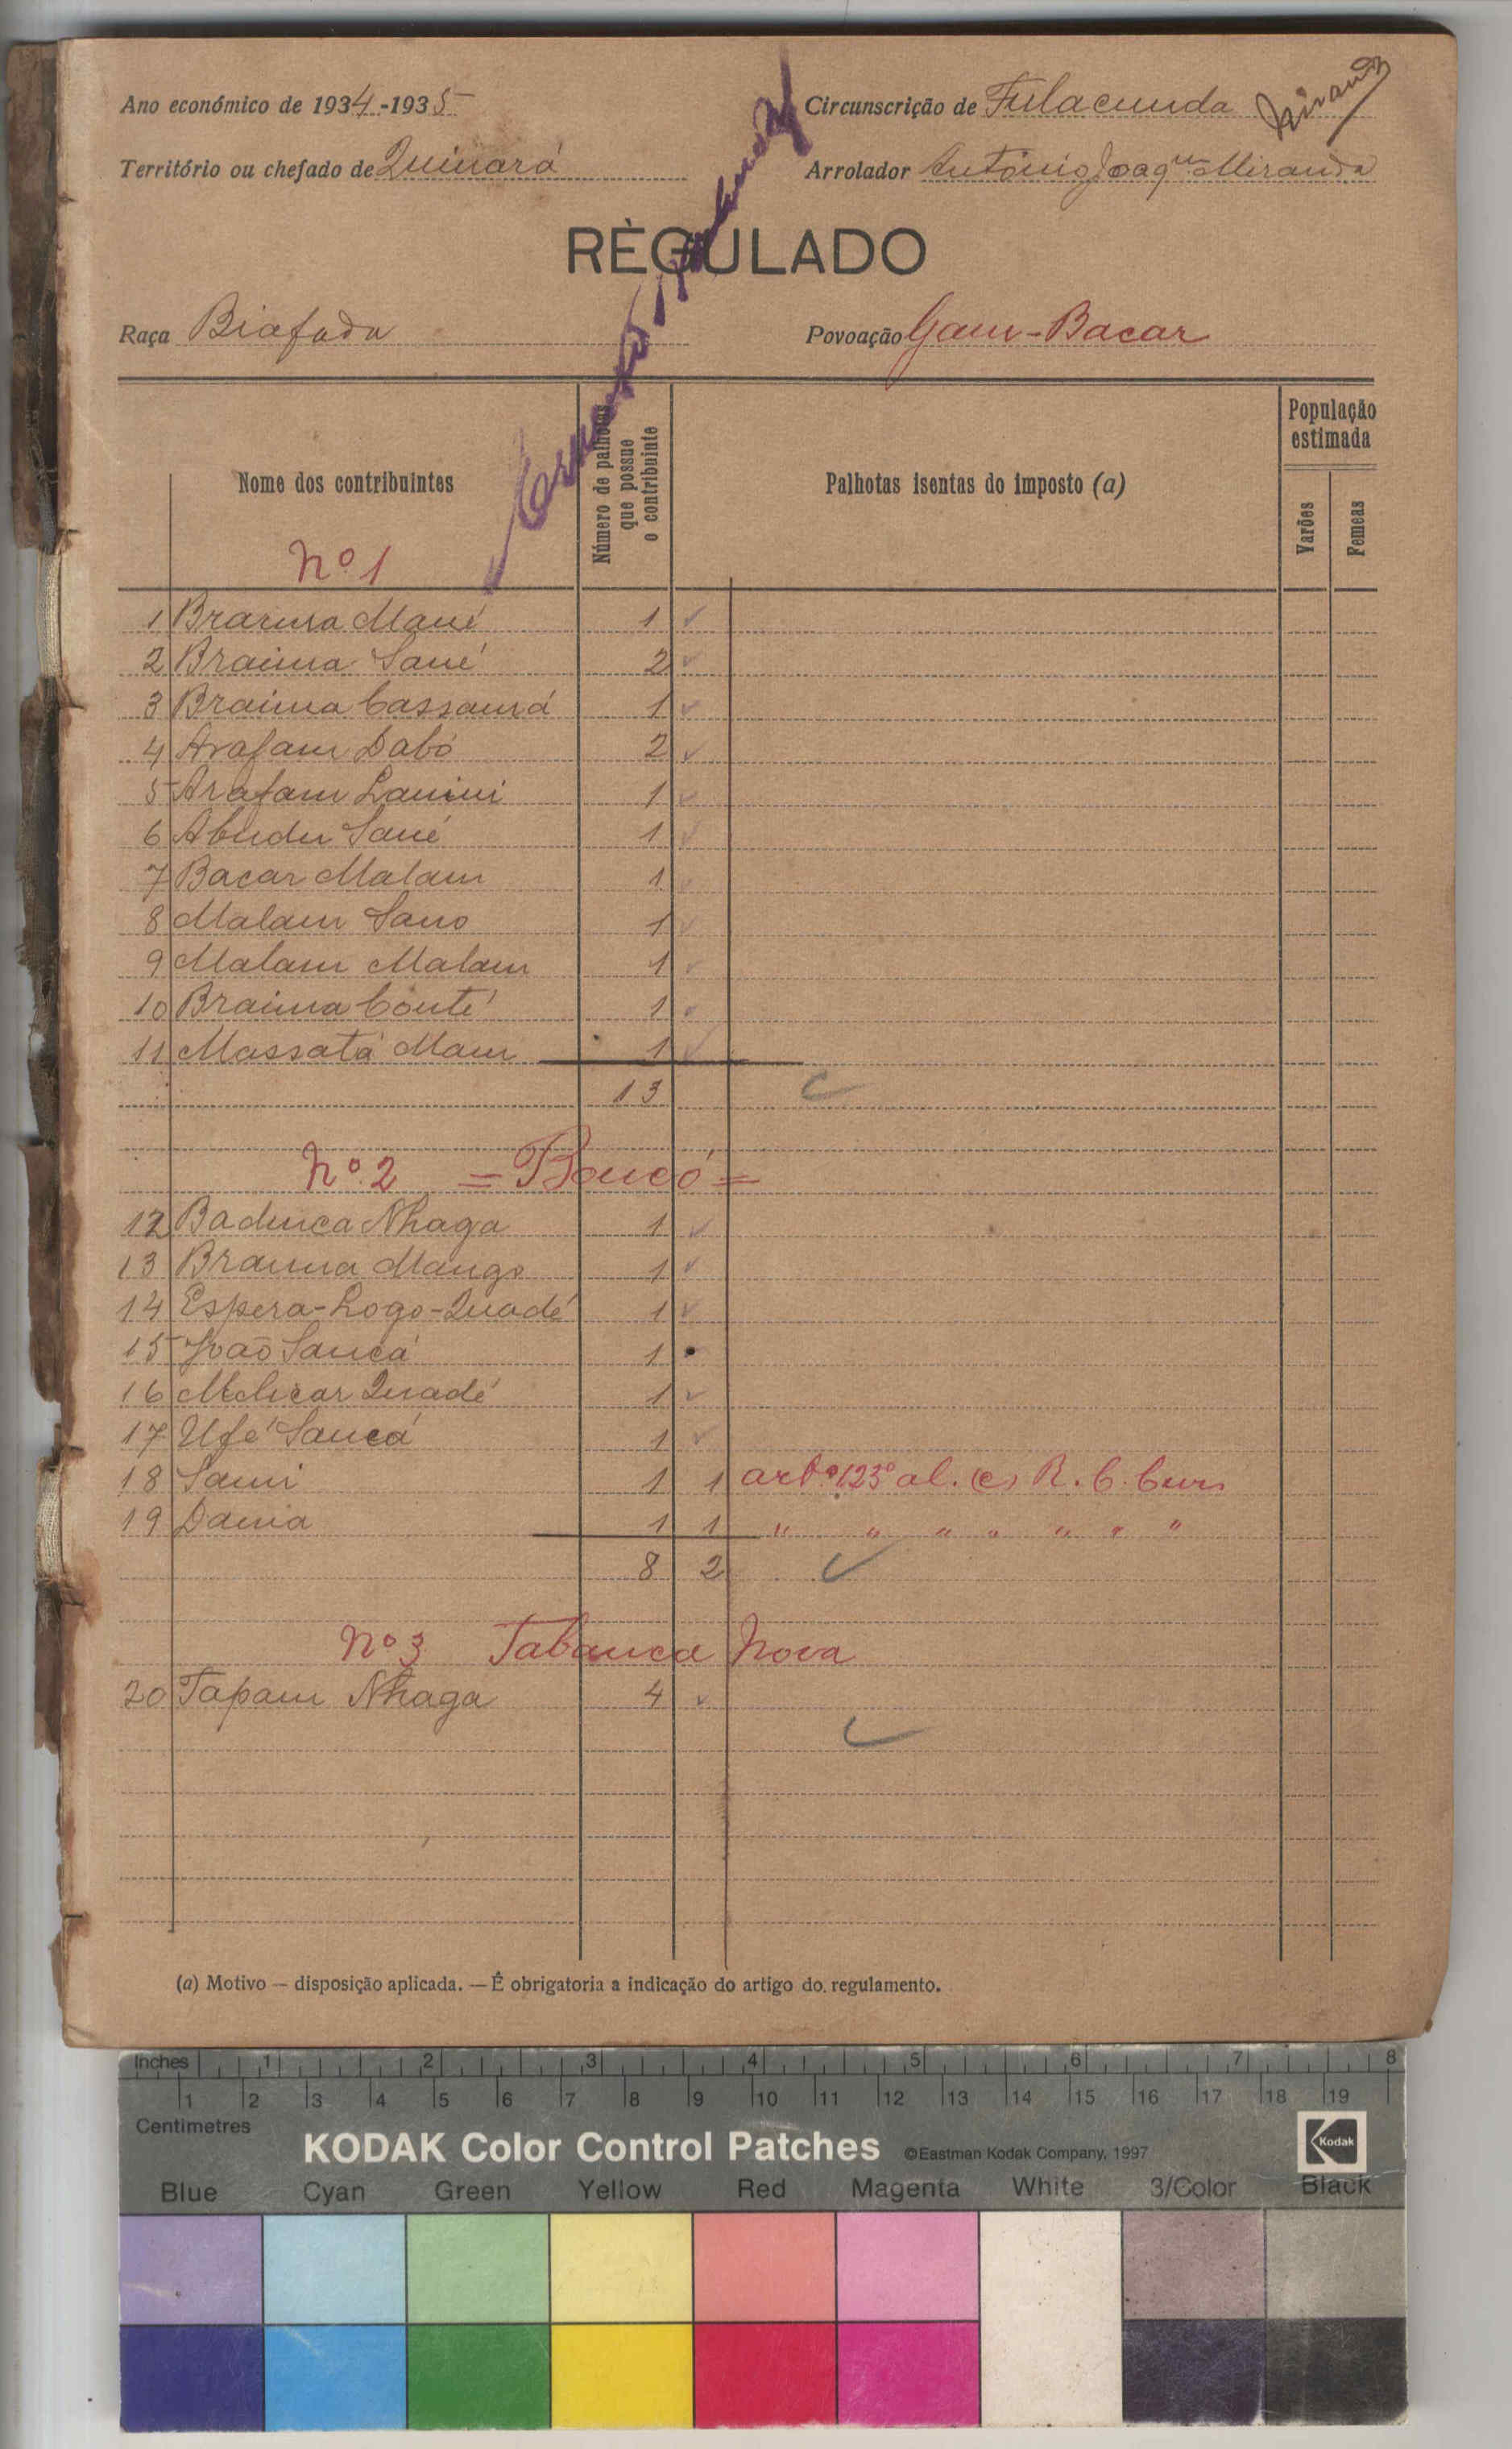 Ano económico de 1934-1935 Circunscrição de Fulacunda Miranda
Território ou chefado de Quinará Arrolador António Joaqm Miranda
RÈGULADO
Raça Biafada Povoação Gam-Bacar
Nome dos contribuintes
Número de palhotas que possue o contribuinte
Palhotas isentas do imposto (a)
População estimada
Varões
Femeas
Nº 1
1 Braima Mané 1
2 Braima Sané 2
3 Braima Cassamá 1
4 Arafam Dabó 2
5 Arafam Lamini 1
6 Abudu Sané 1
7 Bacar Malam 1
8 Malam Sano 1
9 Malam Malam 1
10 Braima Conté 1
11 Massatá Mané 1
13
Nº 2 =Bancó=
12 Badinca Nhaga 1
13 Braima Mango 1
14 Espera-Logo-Quadé 1
15 João Sancá 1
16 Quadé 1
17 Ufé Sancá 1
18 Sami 1 1 artº 123º al. (c) R. C.
19 Dama 1 1 " " " " " " "
8 2
Nº 3 Tabanca Nova
20 Tapam Nhaga 4
(a) Motivo — disposição aplicada. — É obrigatoria a indicação do artigo do regulamento.
Inches 1 2 3 4 5 6 7 8
1 2 3 4 5 6 7 8 9 10 11 12 13 14 15 16 17 18 19
Centimetres
KODAK Color Control Patches ©Eastman Kodak Company, 1997 Kodak
Blue Cyan Green Yellow Red Magenta White 3/Color Black